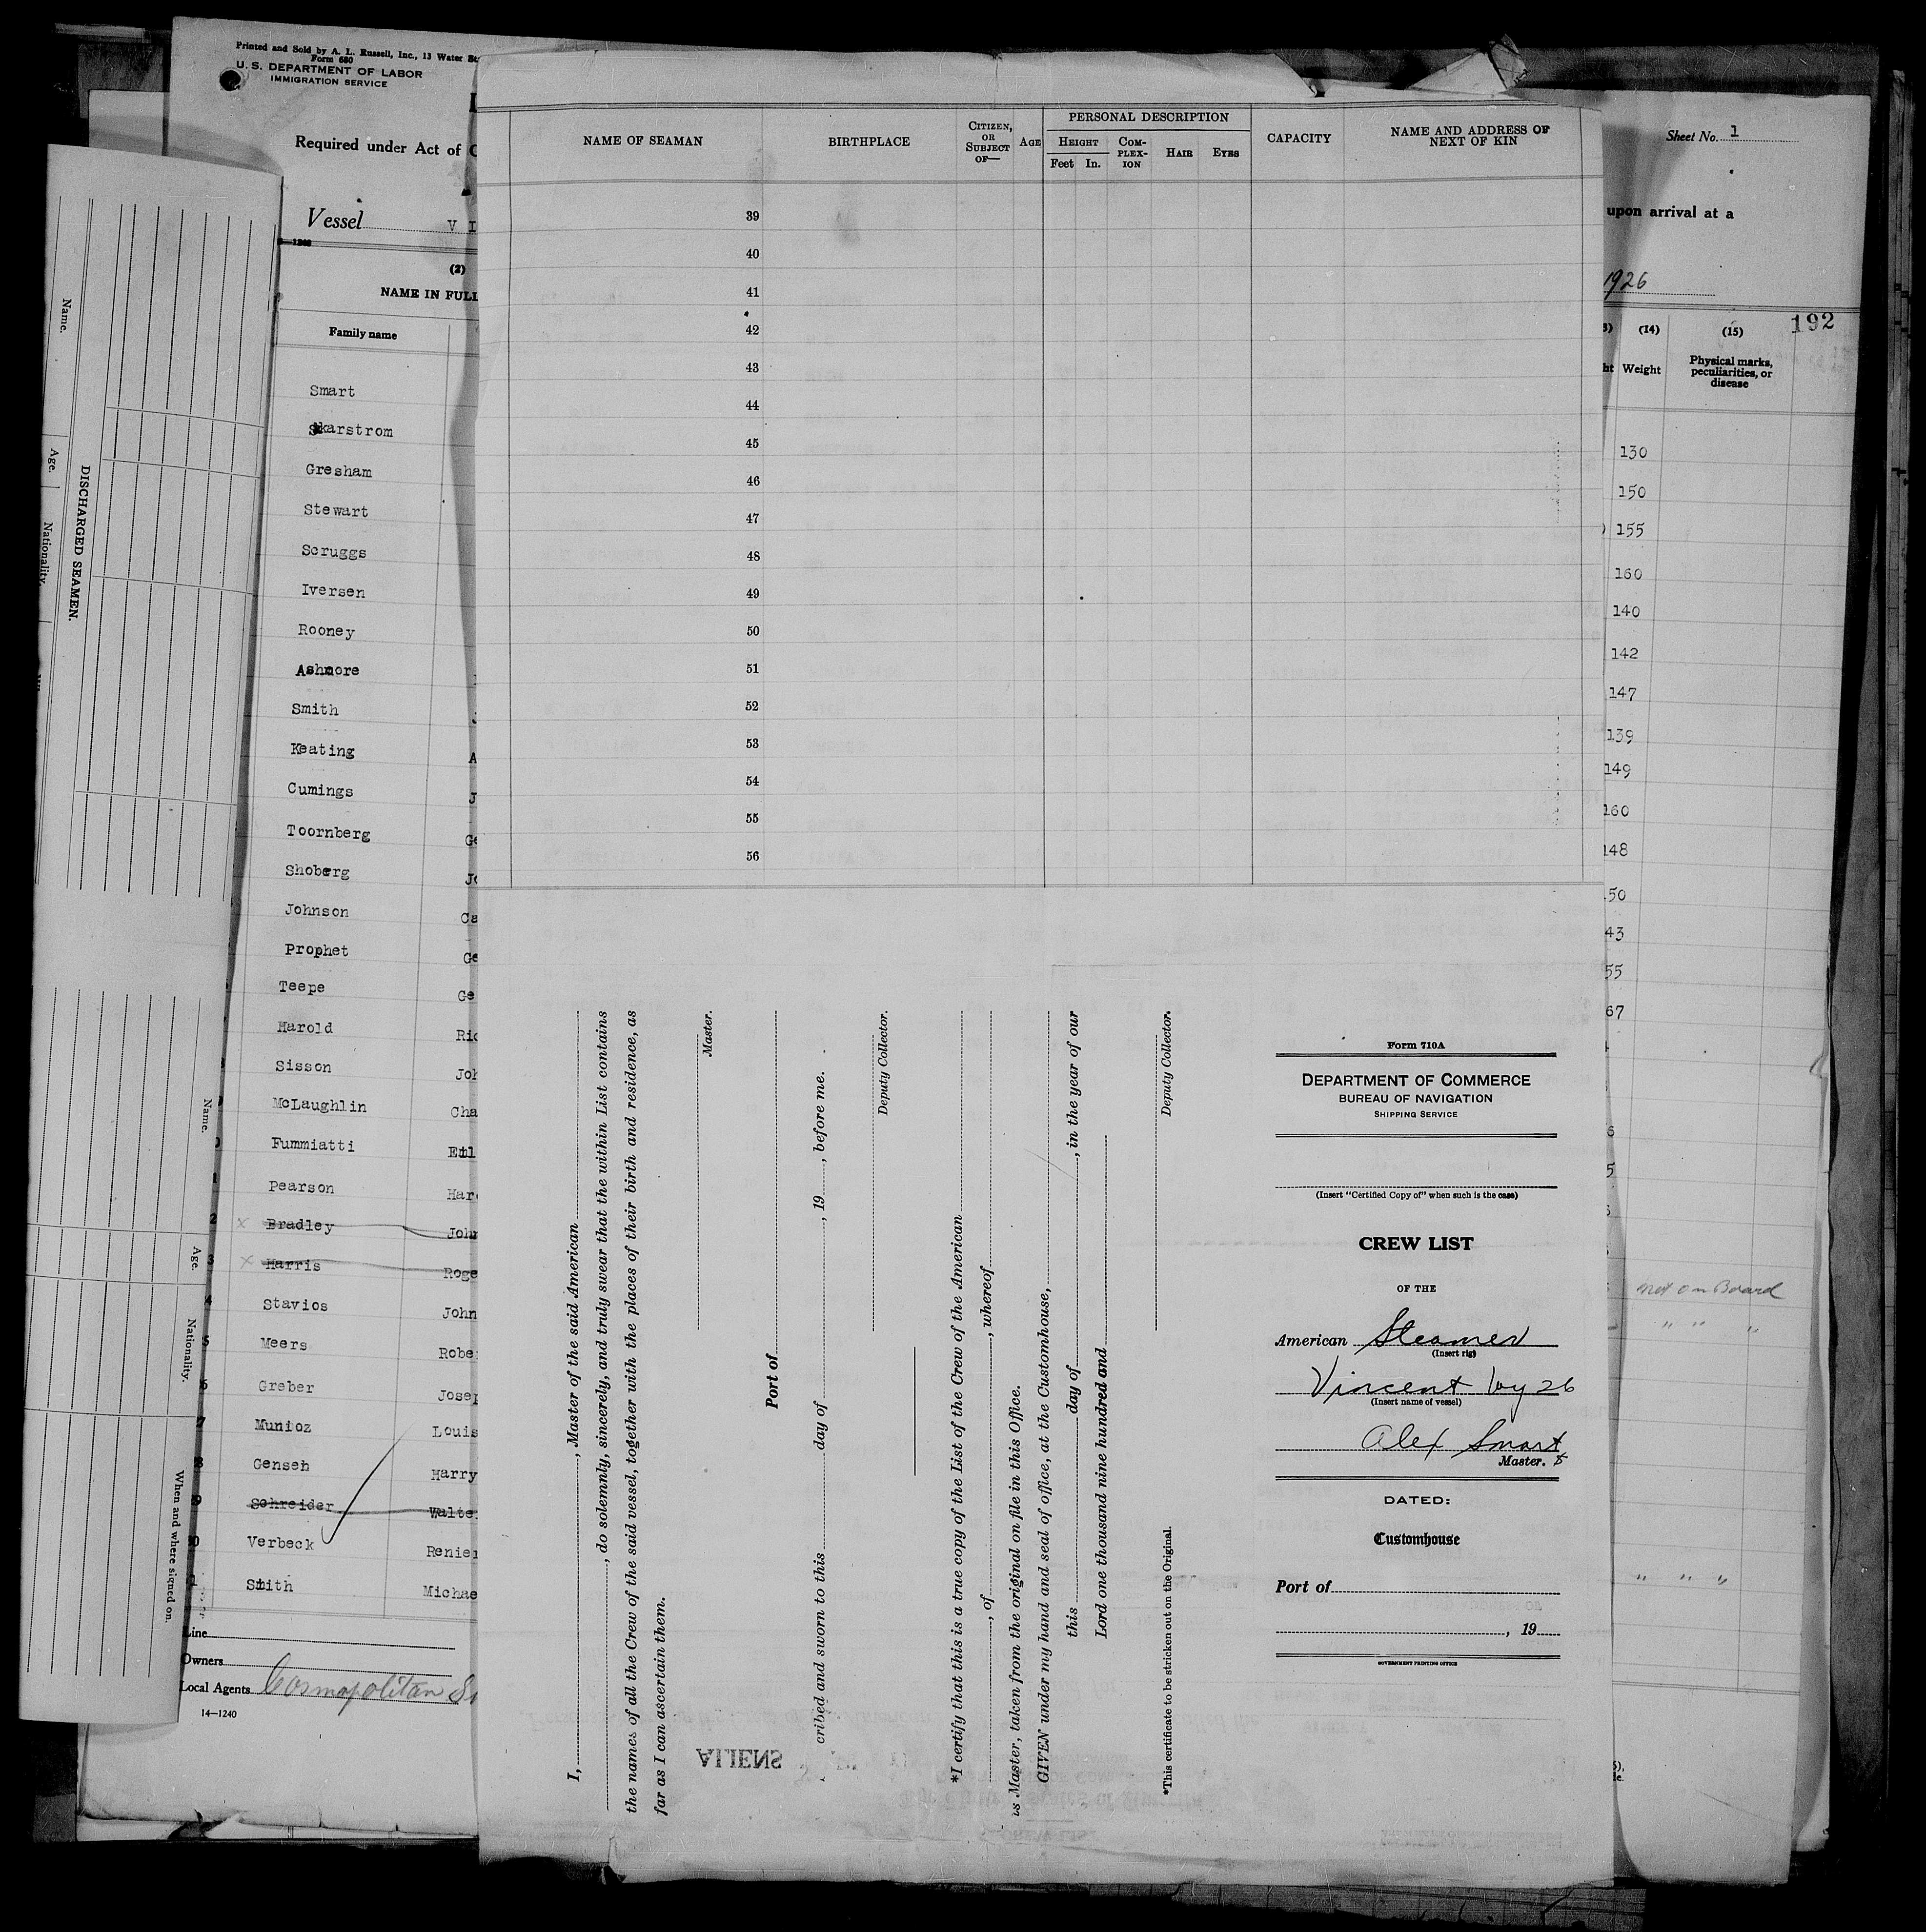 Printed and Sold by A. L. Russell, Inc., 13 Water
Form 680
U. S. DEPARTMENT OF LABOR
IMMIGRATION SERVICE
Required under Act of
Vessel V I
(2)
NAME IN FULL
Family name
Smart
Skarstrom
Gresham
Stewart
Scruggs
Iversen
Rooney
Ashmore
Smith
Keating A
Cumings J
Toornberg Ge
Shoberg Jo
Johnson Ca
Prophet Ge
Teepe Ge
Harold Ric
Sisson Joh
McLaughlin Cha
Fummiatti Emil
Pearson Har
x Bradley John
x Harris Roge
Stavios John
Meers Robe
Greber Josep
Munioz Louis
Genseh Harry
Schreider Walte
Verbeck Renier
Smith Michae
Line
Owners
Local Agents Cosmopolitan
14—1240
DISCHARGED SEAMEN.
Name.
Age.
Nationality.
Name.
Age.
Nationality.
When and where signed on.
NAME OF SEAMAN
BIRTHPLACE
CITIZEN, OR SUBJECT OF—
AGE
PERSONAL DESCRIPTION
HEIGHT
Feet In.
COMPLEX-ION
HAIR
EYES
CAPACITY
NAME AND ADDRESS OF NEXT OF KIN
39
40
41
42
43
44
45
46
47
48
49
50
51
52
53
54
55
56
I, , Master of the said American
, do solemnly, sincerely, and truly swear that the within List contains
the names of all the Crew of the said vessel, together with the places of their birth and residence, as
far as I can ascertain them.
Master.
Port of
cribed and sworn to this day of , 19 , before me.
Deputy Collector.
*I certify that this is a true copy of the List of the Crew of the American
, of , whereof
is Master, taken from the original on file in this Office.
GIVEN under my hand and seal of office, at the Customhouse,
this day of , in the year of our
Lord one thousand nine hundred and
Deputy Collector.
*This certificate to be stricken out on the Original.
ALIENS
Form 710A
DEPARTMENT OF COMMERCE
BUREAU OF NAVIGATION
SHIPPING SERVICE
(Insert "Certified Copy of" when such is the case)
CREW LIST
OF THE
American Steamer
(Insert rig)
Vincent Voy 26
(Insert name of vessel)
Alex Smart
Master.
DATED:
Customhouse
Port of
, 19
GOVERNMENT PRINTING OFFICE
Sheet No. 1
upon arrival at a
1926
192
(14)
(15)
Weight
Physical marks, peculiarities, or disease
130
150
155
160
140
142
147
139
149
160
148
50
43
55
67
not on Board
" " "
" " "